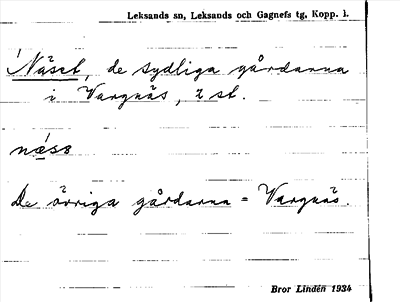 Leksands sn, Leksands och Gagnefs tg, Kopp. l.
Näset, de sydliga gårdarna
i Vargnäs, 2 st.
næss
De övriga gårdarna = Vargnäs.
Bror Lindén 1934